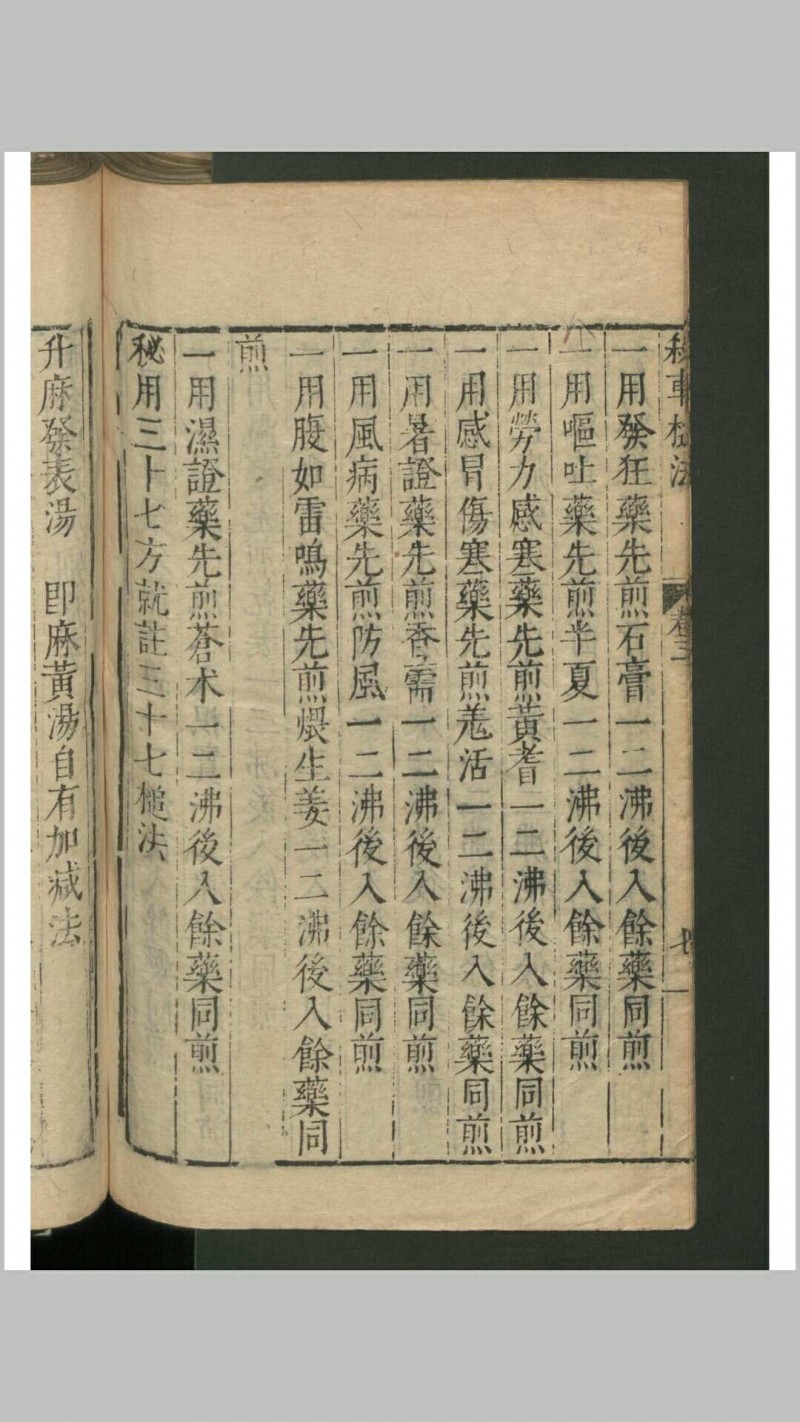 一用發狂藥先煎石膏一二沸後入餘藥同煎
一用嘔吐藥先煎半夏一二沸後入餘藥同煎
一用勞力感寒藥先煎黃耆一二沸後入餘藥同煎
一用感冒傷寒藥先煎羗活一二沸後入餘藥同煎
一用暑證藥先煎香薷一二沸後入餘藥同煎
一用風病藥先煎防風一二沸後入餘藥同煎
一用腹如雷鳴藥先煎煨生姜一二沸後入餘藥同
煎
一用濕證藥先煎蒼朮一二沸後入餘藥同煎
秘用三十七方就註三十七槌法
升麻發表湯 即麻黃湯自有加减法